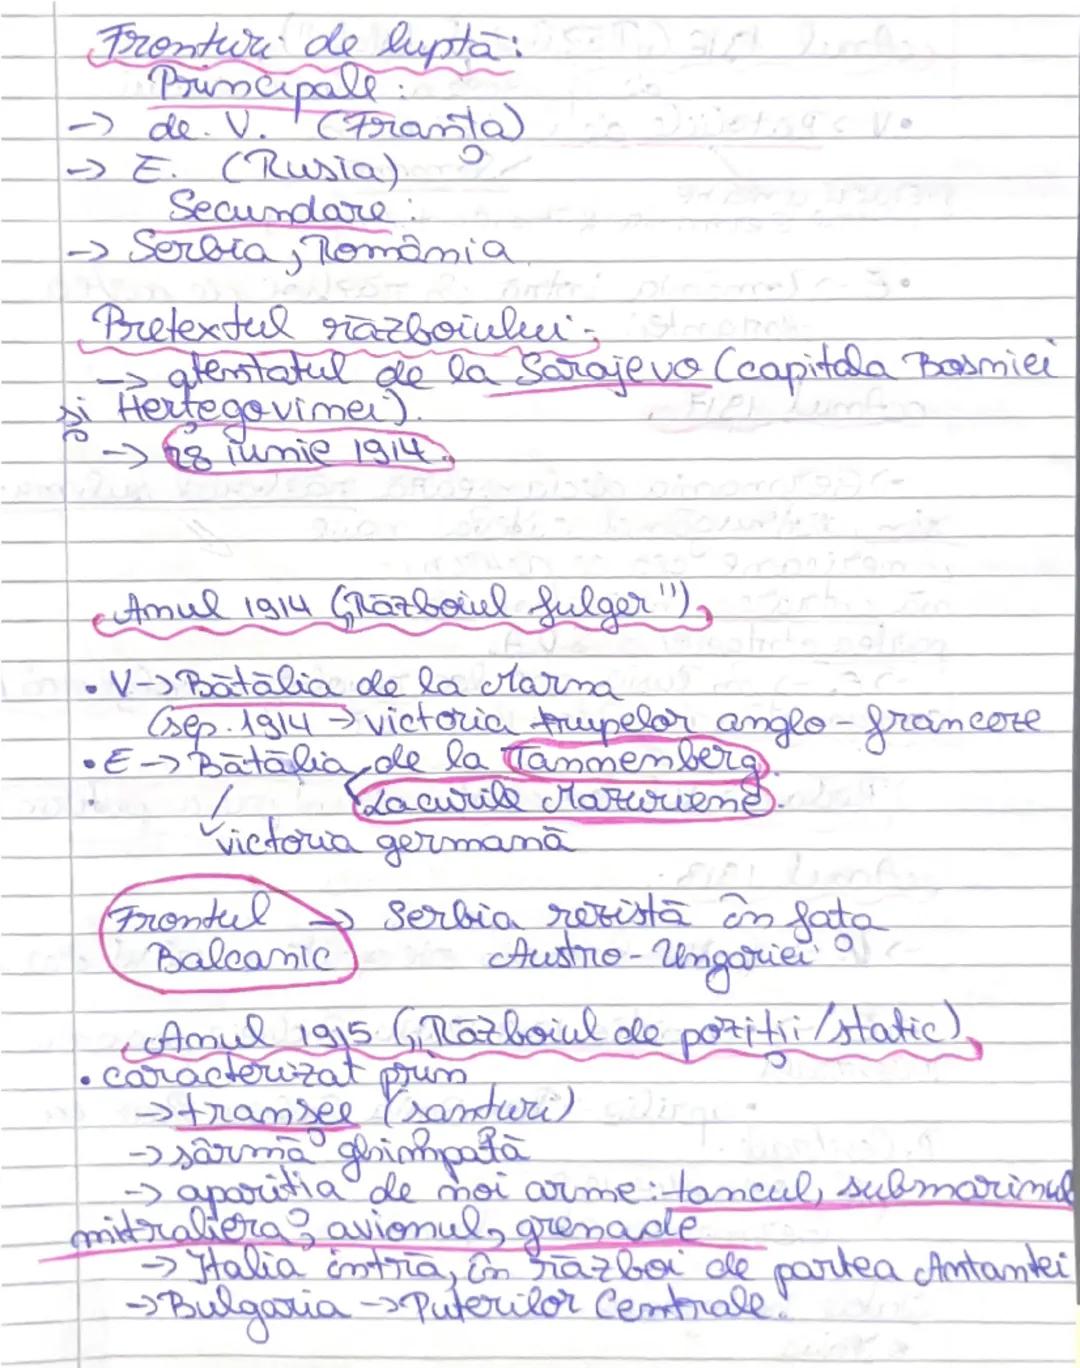 Fronturi de luptă:
Principale:
-> de. V. (Franța)
-> E. (Rusia)
Secundare:
-> Serbia, România
Pretextul războiului:
-> atentatul de la Sarajevo (capitala Bosniei
și Herțegovinei).
-> 28 iunie 1914.
Anul 1914 („Războiul fulger")
• V-> Bătălia de la Marna
(sep. 1914 -> victoria trupelor anglo-franceze
• E -> Bătălia de la Tannenberg.
Lacurile Mazuriene.
victoria germană
Frontul -> Serbia rezistă în fața
Balcanic Austro-Ungariei
Anul 1915 („Războiul de poziții/static)
• caracterizat prin
-> tranșee (șanțuri)
-> sârmă ghimpată
-> apariția de noi arme: tancul, submarinul
mitraliera, avionul, grenade
-> Italia intră, în război de partea Antantei
-> Bulgaria -> Puterilor Centrale.